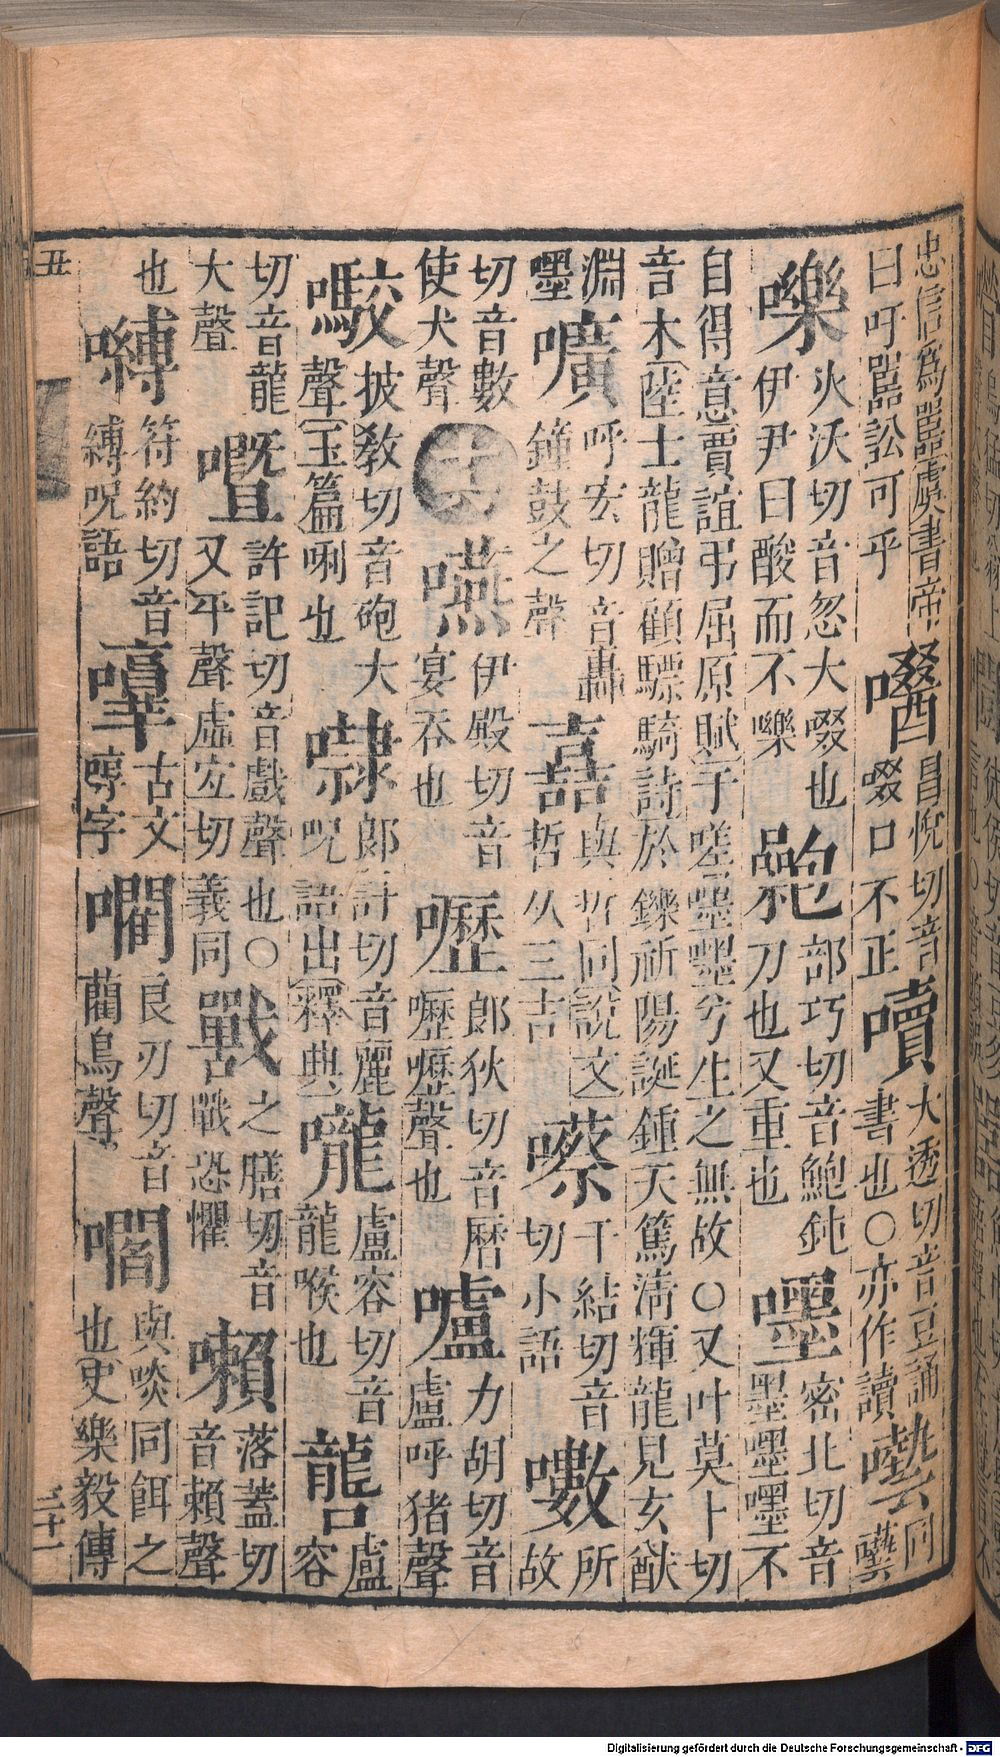 忠信爲嚚虞書帝
曰吁嚚訟可乎
嚽昌悅切音
啜口不正
嚽
大透切音豆誦
書也○亦作讀
囈同
嚛火沃切音忽大啜也
伊尹曰酸而不嚛
部巧切音鮑鈍
刀也又重也
嚜密北切音
墨嚜嚜不
自得意賈誼弔屈原賦于嗟嚜嚜兮生之無故○又叶莫卜切
音木陸士龍贈顧驃騎詩於鑠祈陽誕鍾天篤淸輝龍見玄猷
淵嚜
嚝呼宏切音轟
鐘鼓之聲
嚞與哲同說文
哲从三吉
嚓千結切音
切小語
嚽所
故
切音數
使犬聲
十六
嚥伊殿切音
宴吞也
嚦郎狄切音曆
嚦嚦聲也
嚧力胡切音
盧呼猪聲
披敎切音砲大
聲玉篇咧也
郎計切音麗
呪語出釋典
嚨盧容切音
龍喉也
盧
容
切音龍
大聲
嚱許記切音戲聲也○
又平聲虛宜切義同
之膳切音
戰恐懼
嚬落蓋切
音賴聲
也
嚩符約切音
縛呪語
古文
嘑字
良刃切音
藺鳥聲
嚪與啖同餌之
也史樂毅傳
丑
三十一
Digitalisierung gefördert durch die Deutsche Forschungsgemeinschaft - DFG